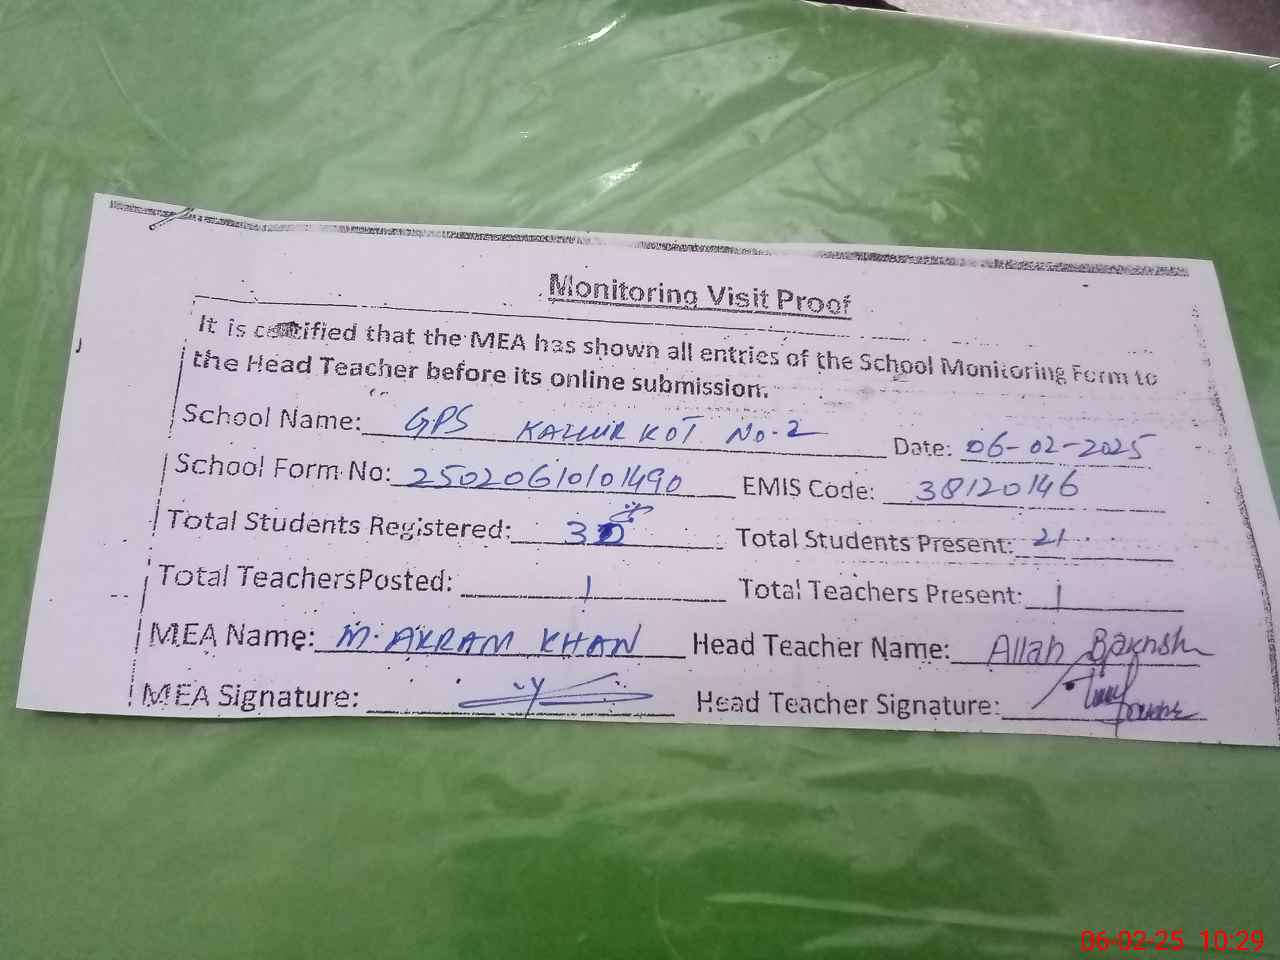 Monitoring Visit Proof
It is certified that the MEA has shown all entries of the School Monitoring Form to
the Head Teacher before its online submission.
School Name: GPS KALLUR KOT NO-2 Date: 06-02-2025
School Form No: 25020610101490 EMIS Code: 38120146
Total Students Registered: Total Students Present: 21
Total TeachersPosted: 1 Total Teachers Present: 1
MEA Name: M. AKRAM KHAN Head Teacher Name: Allah Bakhsh
MEA Signature: Head Teacher Signature:
06-02-25 10:29